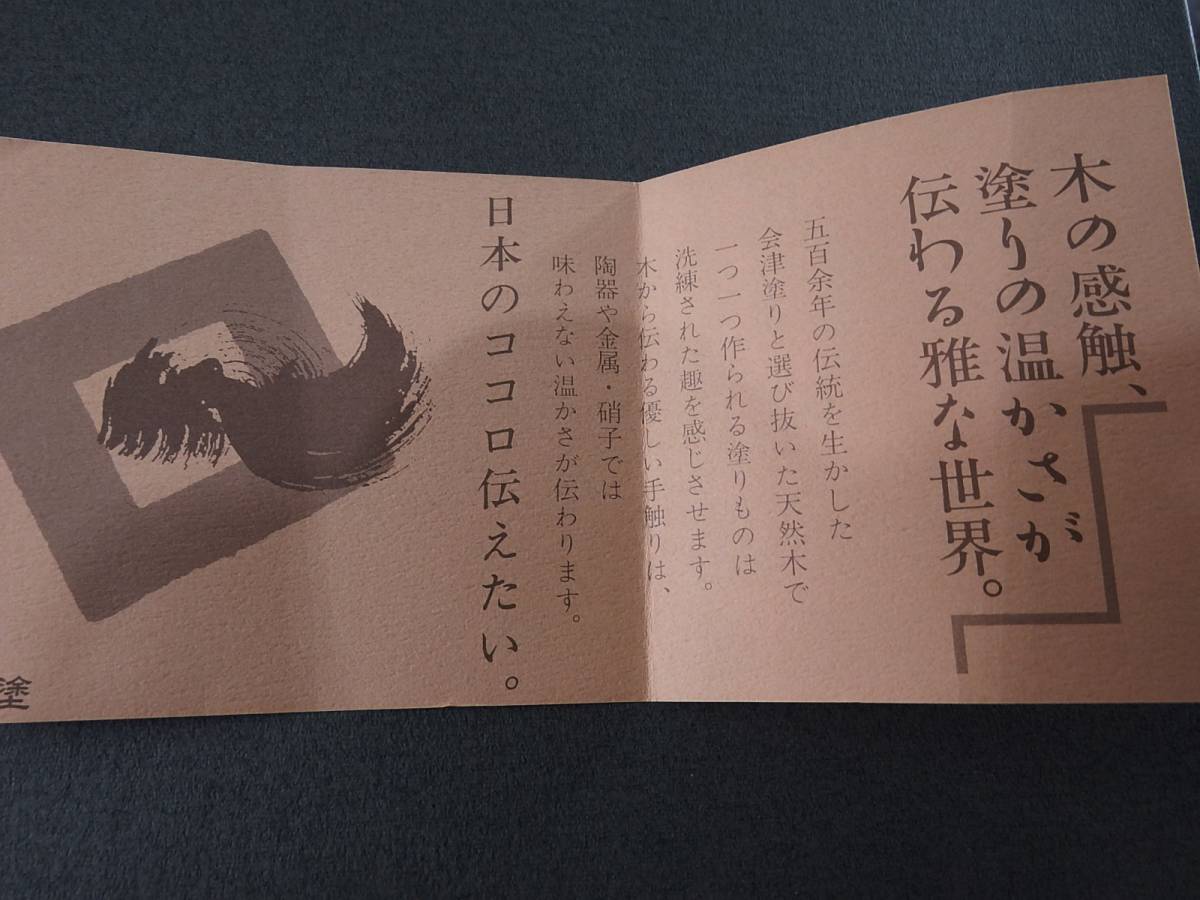 木の感触、
塗りの温かさが
伝わる雅な世界。
五百余年の伝統を生かした
会津塗りと選び抜いた天然木で
一つ一つ作られる塗りものは
洗練された趣を感じさせます。
木から伝わる優しい手触りは、
陶器や金属・硝子では
味わえない温かさが伝わります。
日本のココロ伝えたい。
塗